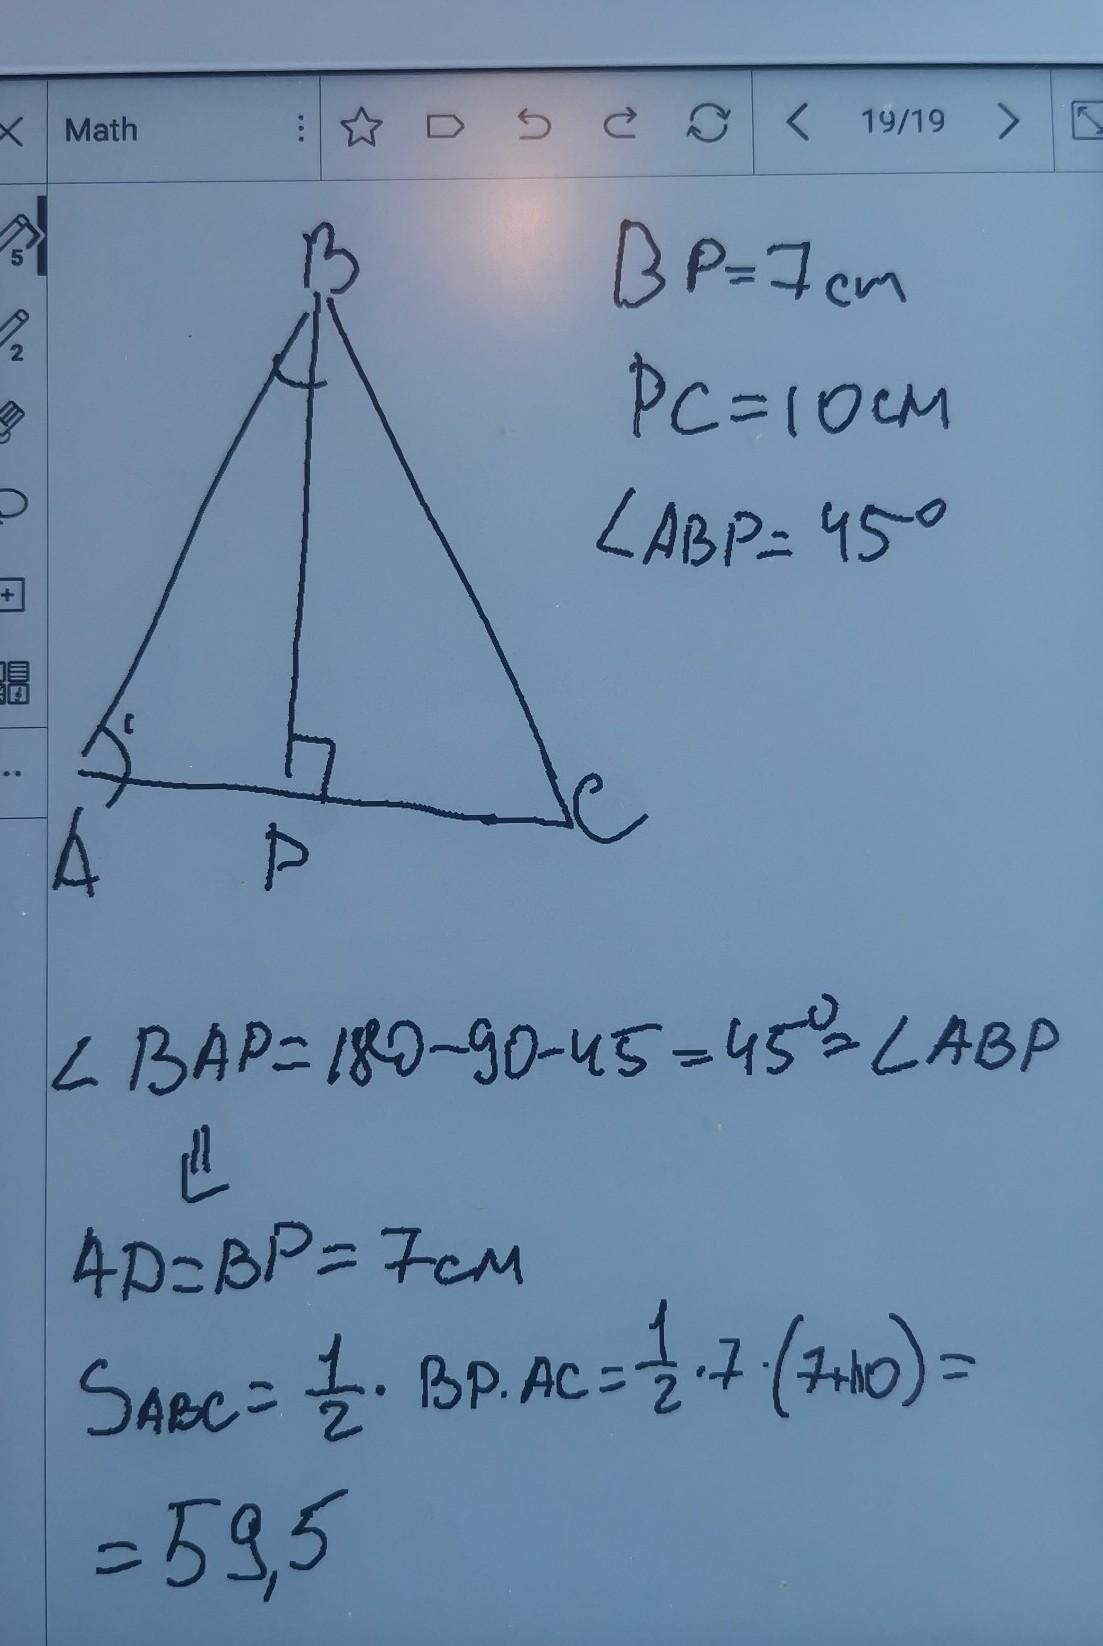 Math
19/19
5
2
B
A
P
C
BP=7cm
PC=10см
∠ABP=45°
∠BAP=180-90-45=45°=∠ABP
AD=BP=7см
SABC=1/2·BP·AC=1/2·7·(7+10)=
=59,5